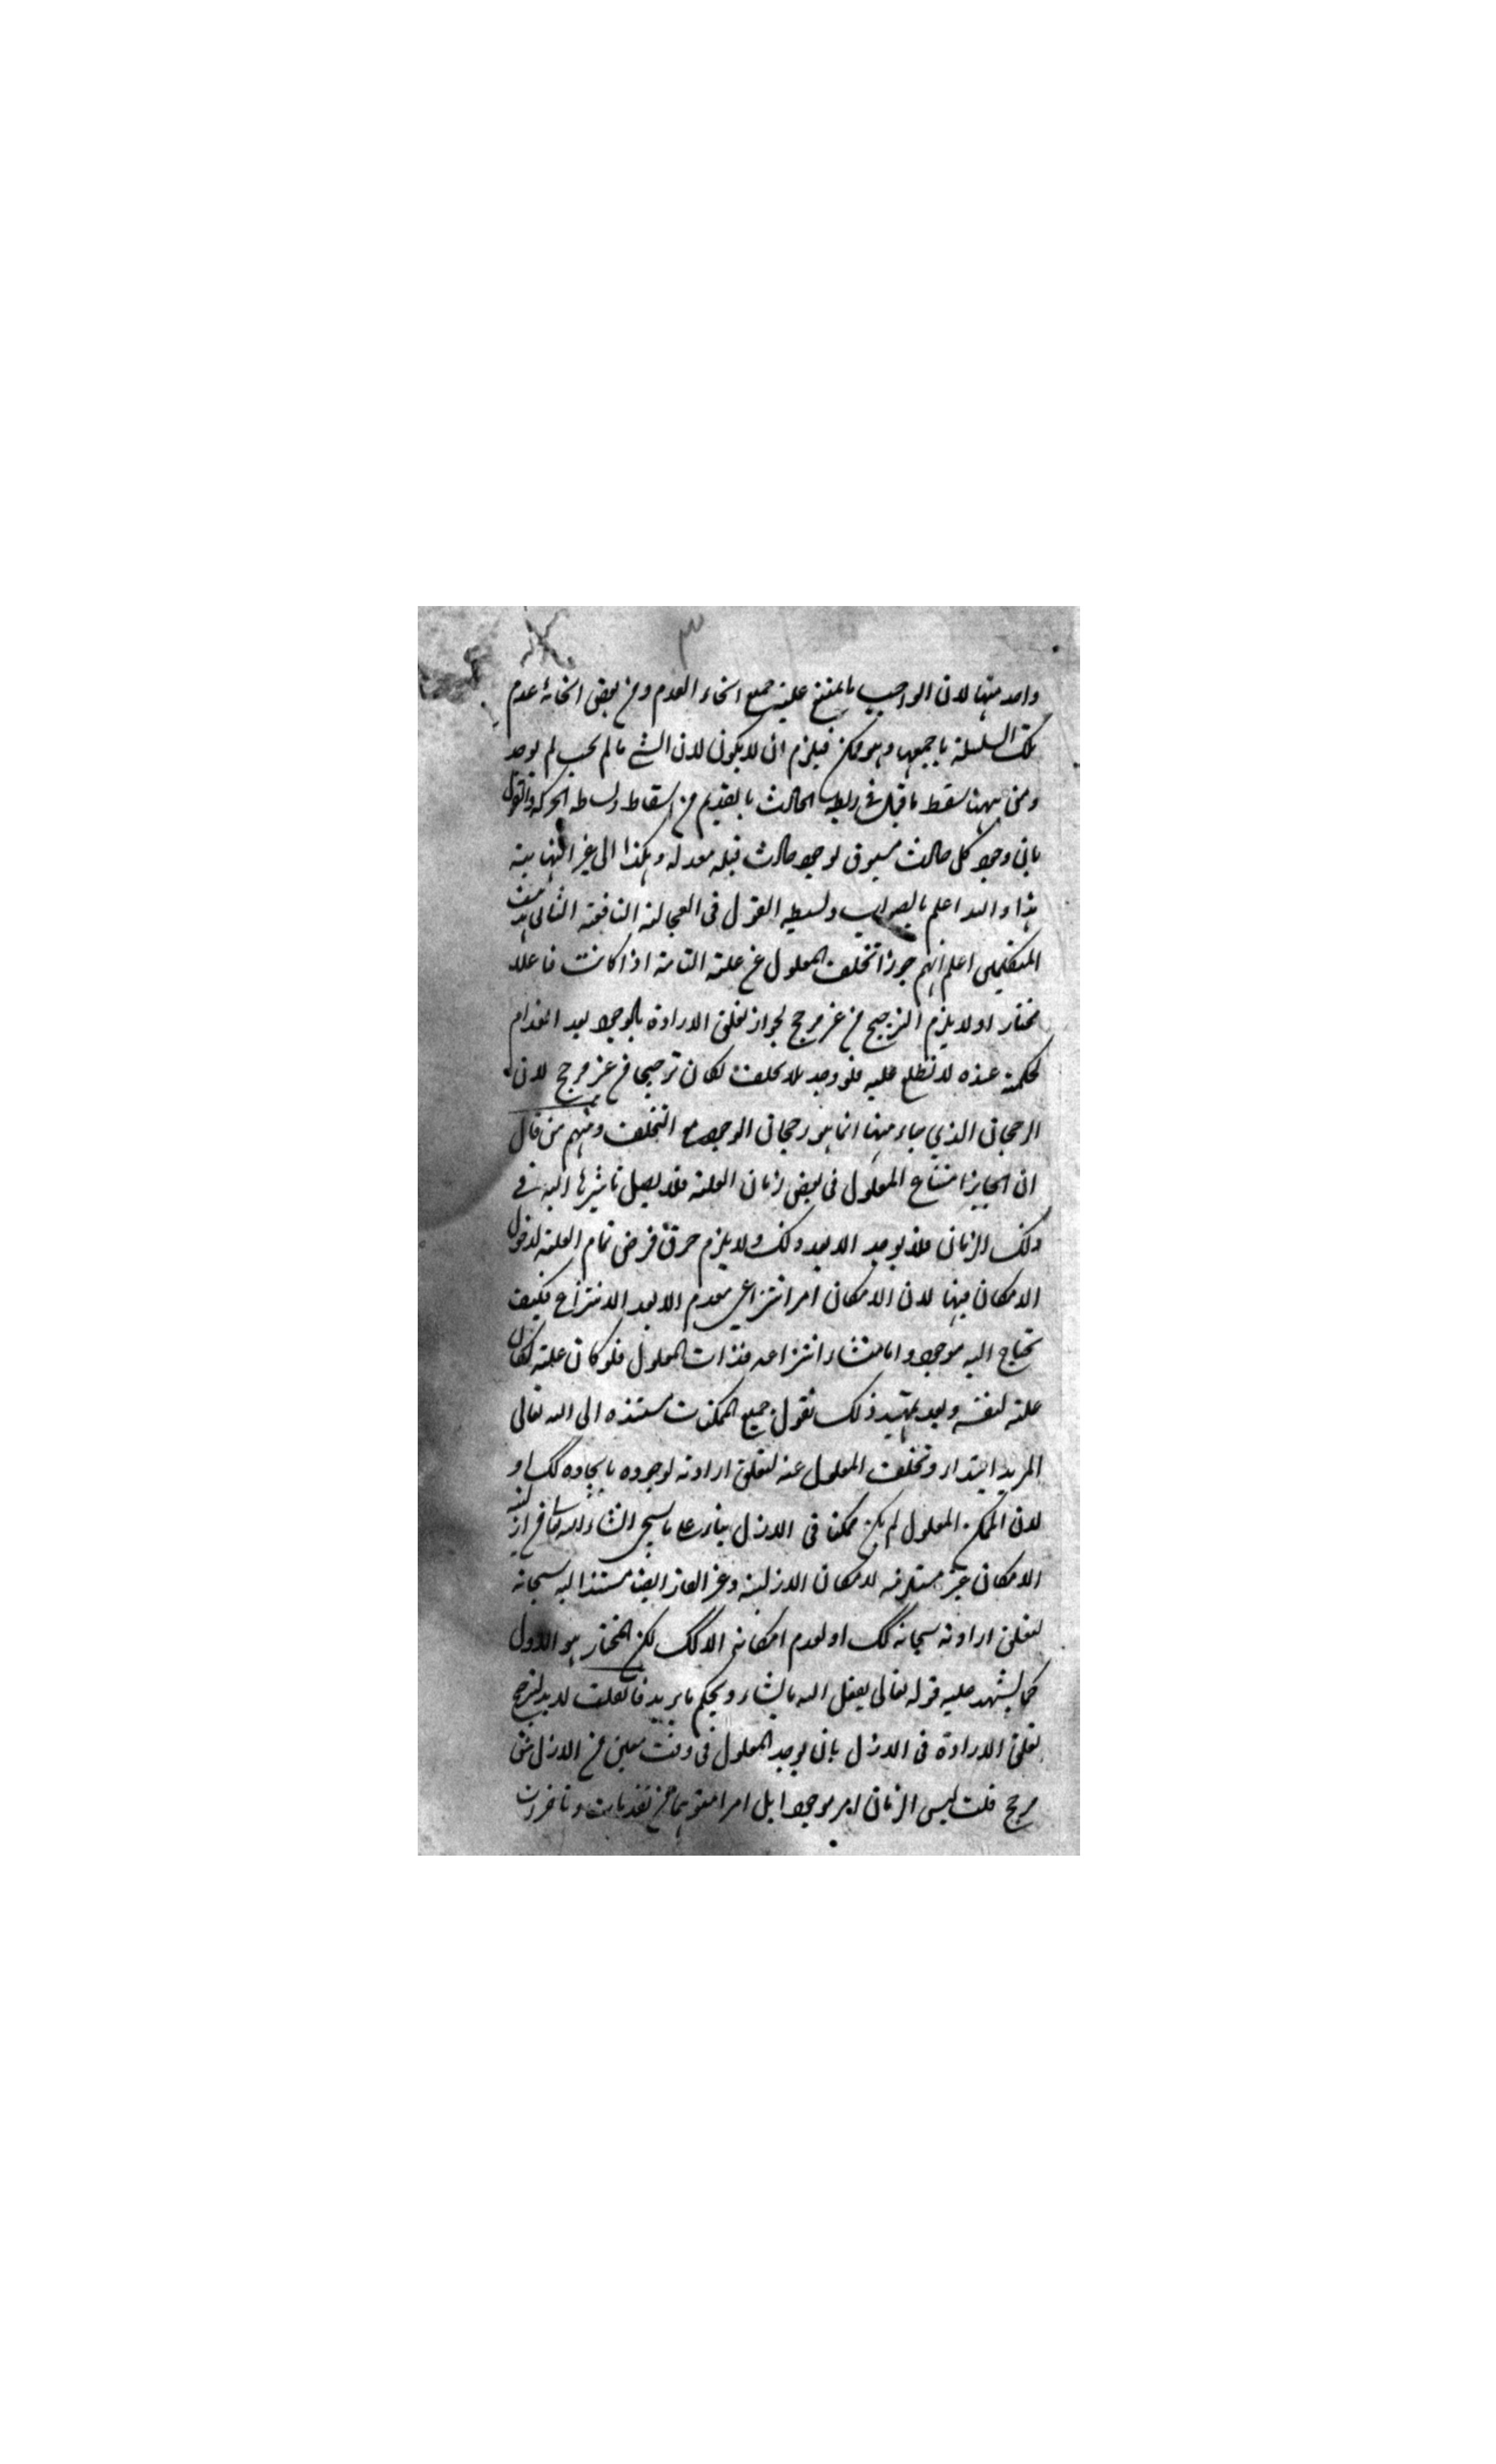 ٣
واحد منها لان الواجب ما يمتنع عليه جميع انحاء العدم ومن بعض انحائه عدم
تلك السلسلة باجمعها وهو ممكن فيلزم ان لا يكون لان الشي ما لم يجب لم يوجد
ومن ههنا سقط ما قيل في ربط الحادث بالقديم من اسقاط واسطة الحركة والقول
بان وجود كل حادث مسبوق لوجود حادث قبله معد له وهكذا الى غير النهاية
هذا والله اعلم بالصواب وبسيطه القول في العجالة النافعة الثاني مذهب
المتكلمين اعلم انهم جوزوا تخلف المعلول عن علته التامة اذا كانت فاعلا
مختارا ولا يلزم الترجيح من غير مرجح لجواز تعلق الارادة بالوجود بعد انعدام
لحكمة عنده لا نطلع عليه فلو وجد بلا تخلف لكان ترجيحا من غير مرجح لان
الرجحان الذي جاء منها انما هو رجحان الوجود مع التخلف ومنهم من قال
ان الجايز امتناع المعلول في بعض زمان العلة فلا يصل تاثيرها اليه في
ذلك الزمان فلا يوجد الا بعد ذلك ولا يلزم خرق فرض تمام العلة لدخول
الامكان فيها لان الامكان امر انتزاعي معدوم الا بعد الانتزاع فكيف
تحتاج اليه موجود واما منشاء انتزاعه فذات المعلول فلو كان علته لكان
علة لنفسه وبعد تمهيد ذلك نقول جميع الممكنات مستندة الى الله تعالى
المريد ابتداء وتخلف المعلول عنه لتعلق ارادته لوجوده بايجاده كك او
لان الممكن المعلول لم يكن ممكنا في الازل بناء على ما سيجي انشاء الله تعالى من ازلية
الامكان غير مستلزمة لامكان الازلية وغير القار ايضا مستندا اليه سبحانه
لتعلق ارادته سبحانه كك او لعدم امكانه الا كك لكن المختار هو الاول
كما يشهد عليه قوله تعالى يفعل الله ما يشاء ويحكم ما يريد فان قلت لا بد لترجيح
تعلق الارادة في الازل بان يوجد المعلول في وقت معين من الازل من
مرجح قلت ليس الزمان امر موجودا بل امرا متوهما من تقدمات وتاخرات